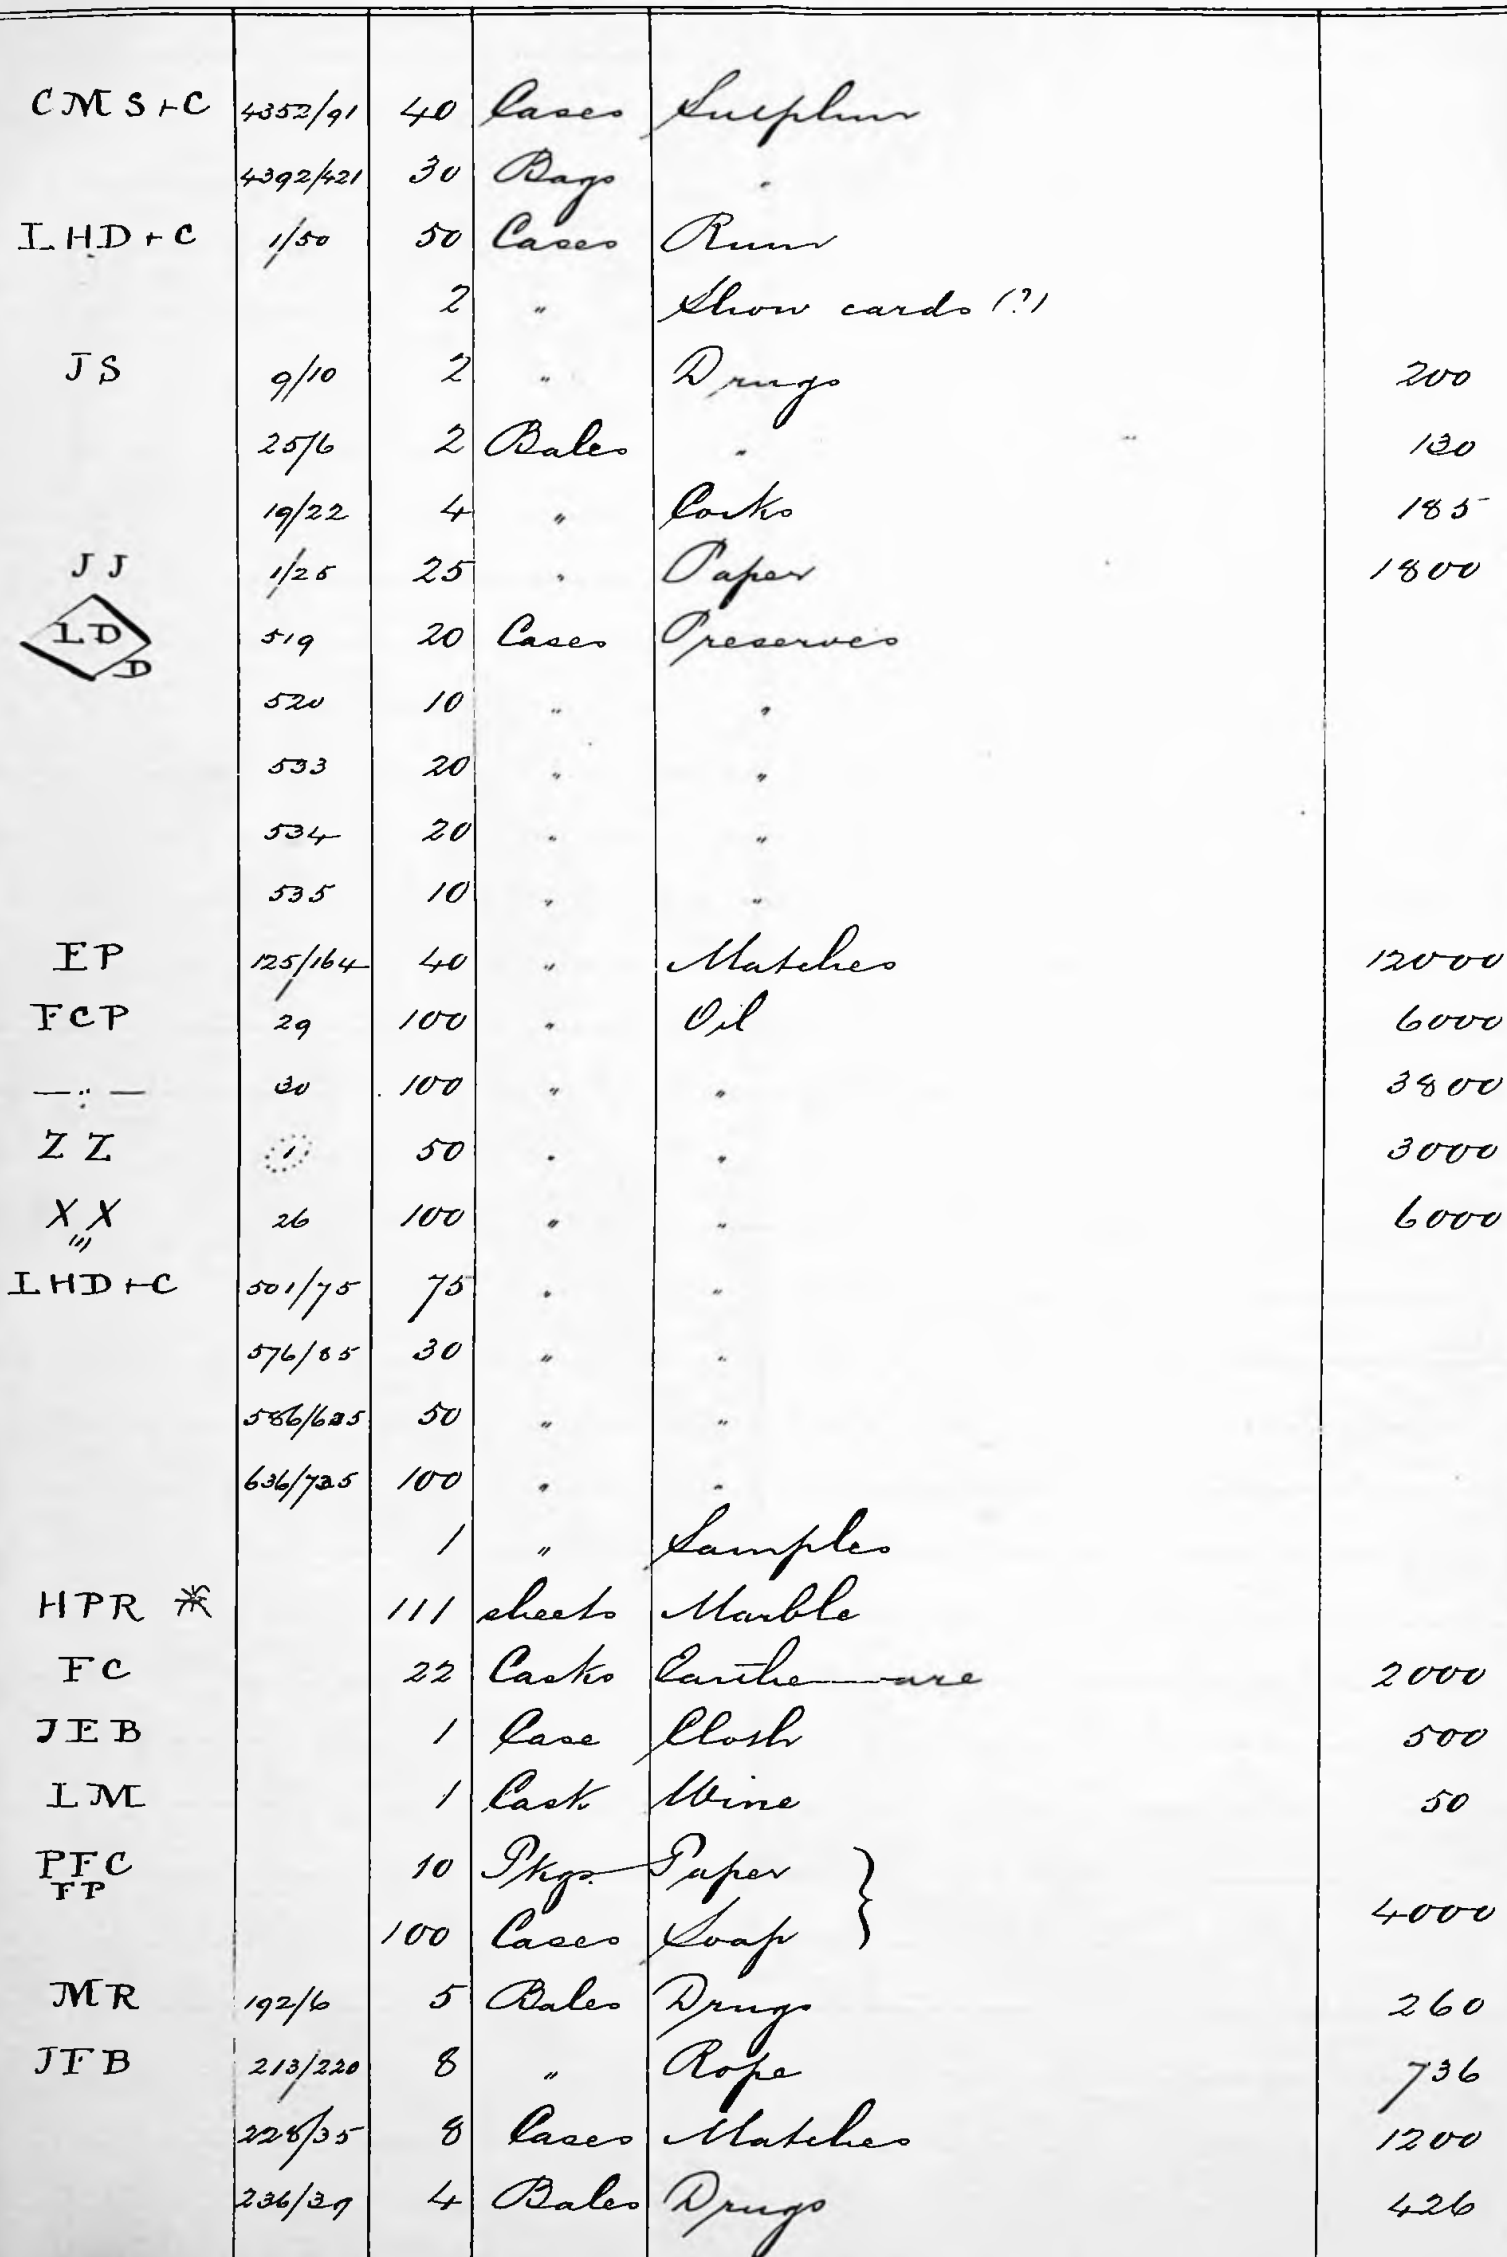 CMS+C 4352/91 40 Cases Sulphur
4392/421 30 Bags "
LHD+C 1/50 50 Cases Rum
2 " Show cards (?)
JS 9/10 2 " Drugs 200
25/6 2 Bales " 130
19/22 4 " Corks 185
JJ 1/25 25 " Paper 1800
LD D 519 20 Cases Preserves
520 10 " "
533 20 " "
534 20 " "
535 10 " "
EP 125/164 40 " Matches 12000
FCP 29 100 " Oil 6000
—:— 30 100 " " 3800
ZZ 1 50 " " 3000
X,,,X 26 100 " " 6000
LHD+C 501/75 75 " "
576/85 30 " "
586/635 50 " "
636/735 100 " "
1 " Samples
HPR 111 sheets Marble
FC 22 Casks Earthenware 2000
JEB 1 Case Cloth 500
LM 1 Cask Wine 50
PFC 10 Pkgs. Paper }
FP
100 Cases Soap 4000
MR 192/6 5 Bales Drugs 260
JFB 213/220 8 " Rope 736
228/35 8 Cases Matches 1200
236/39 4 Bales Drugs 426